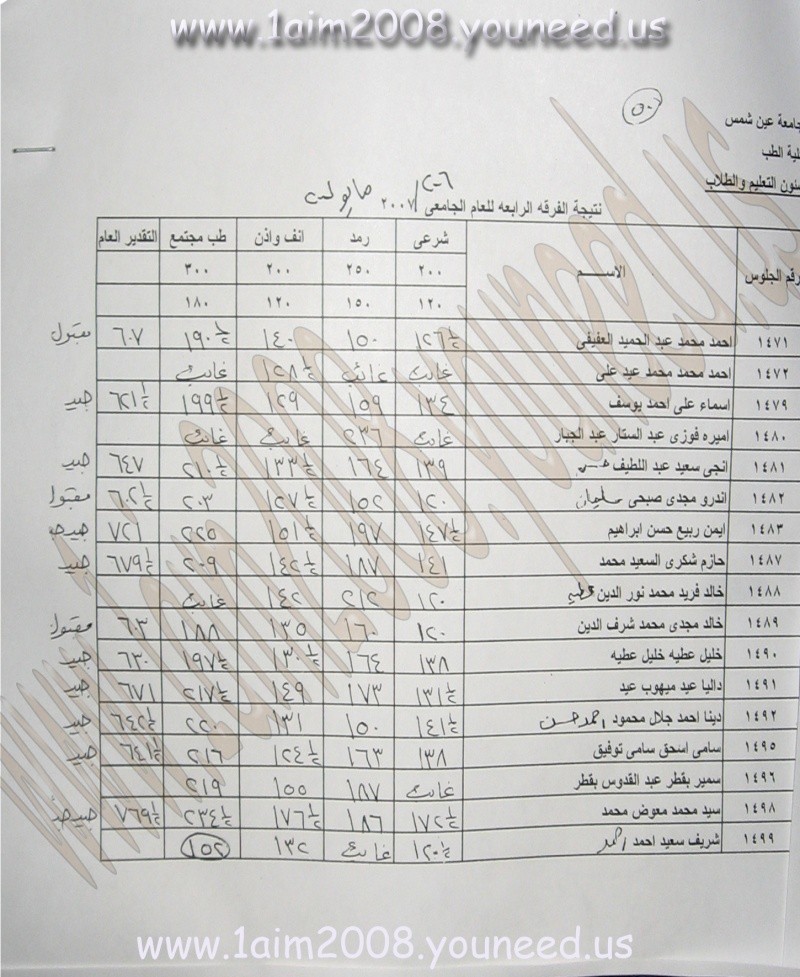 www.1aim2008.youneed.us
٥٠
جامعة عين شمس
كلية الطب
شئون التعليم والطلاب
نتيجة الفرقه الرابعه للعام الجامعى ٢٠٠٦/٢٠٠٧
رقم الجلوس الاســـم شرعى رمد انف واذن طب مجتمع التقدير العام
٢٠٠ ٢٥٠ ٢٠٠ ٣٠٠
١٢٠ ١٥٠ ١٢٠ ١٨٠
١٤٧١ احمد محمد عبد الحميد العفيفى ١٢٦½ ١٥٠ ١٤٠ ١٩٠½ ٦٠٧ مقبول
١٤٧٢ احمد محمد محمد عيد على غائب غائب ١٢٨½ غائب
١٤٧٩ اسماء على احمد يوسف ١٣٤ ١٥٩ ١٢٩ ١٩٩½ ٦٢١½ جيد
١٤٨٠ اميره فوزى عبد الستار عبد الجبار غائب ٢٣٦ غائب غائب
١٤٨١ انجى سعيد عبد اللطيف ١٣٩ ١٦٤ ١٣٣½ ٢١٠½ ٦٤٧ جيد
١٤٨٢ اندرو مجدى صبحى سليمان ١٢٠ ١٥٢ ١٢٧½ ٢٠٣ ٦٠٢½ مقبول
١٤٨٣ ايمن ربيع حسن ابراهيم ١٤٧½ ١٩٧ ١٥١½ ٢٢٥ ٧٢١ جيد جدا
١٤٨٧ حازم شكرى السعيد محمد ١٤١ ١٨٧ ١٤٢½ ٢٠٩ ٦٧٩½ جيد
١٤٨٨ خالد فريد محمد نور الدين ١٢٠ ٢١٢ ١٤٢ غائب
١٤٨٩ خالد مجدى محمد شرف الدين ١٢٠ ١٦٠ ١٣٥ ١٨٨ ٦٠٣ مقبول
١٤٩٠ خليل عطيه خليل عطيه ١٣٨ ١٦٤ ١٣٠½ ١٩٧½ ٦٣٠ جيد
١٤٩١ داليا عيد ميهوب عيد ١٣١½ ١٧٣ ١٤٩ ٢١٧½ ٦٧١ جيد
١٤٩٢ دينا احمد جلال محمود احمد حسن ١٤١½ ١٥٠ ١٣١ ٢٢٠ ٦٤٢½ جيد
١٤٩٥ سامى اسحق سامى توفيق ١٣٨ ١٦٣ ١٢٤½ ٢١٦ ٦٤١½ جيد
١٤٩٦ سمير بقطر عبد القدوس بقطر غائب ١٨٧ ١٥٥ ٢١٩
١٤٩٨ سيد محمد معوض محمد ١٧٢½ ١٨٦ ١٧٦½ ٢٣٤½ ٧٦٩½ جيد جدا
١٤٩٩ شريف سعيد احمد احمد ١٢٠½ غائب ١٣٢ ١٥٢
www.1aim2008.youneed.us